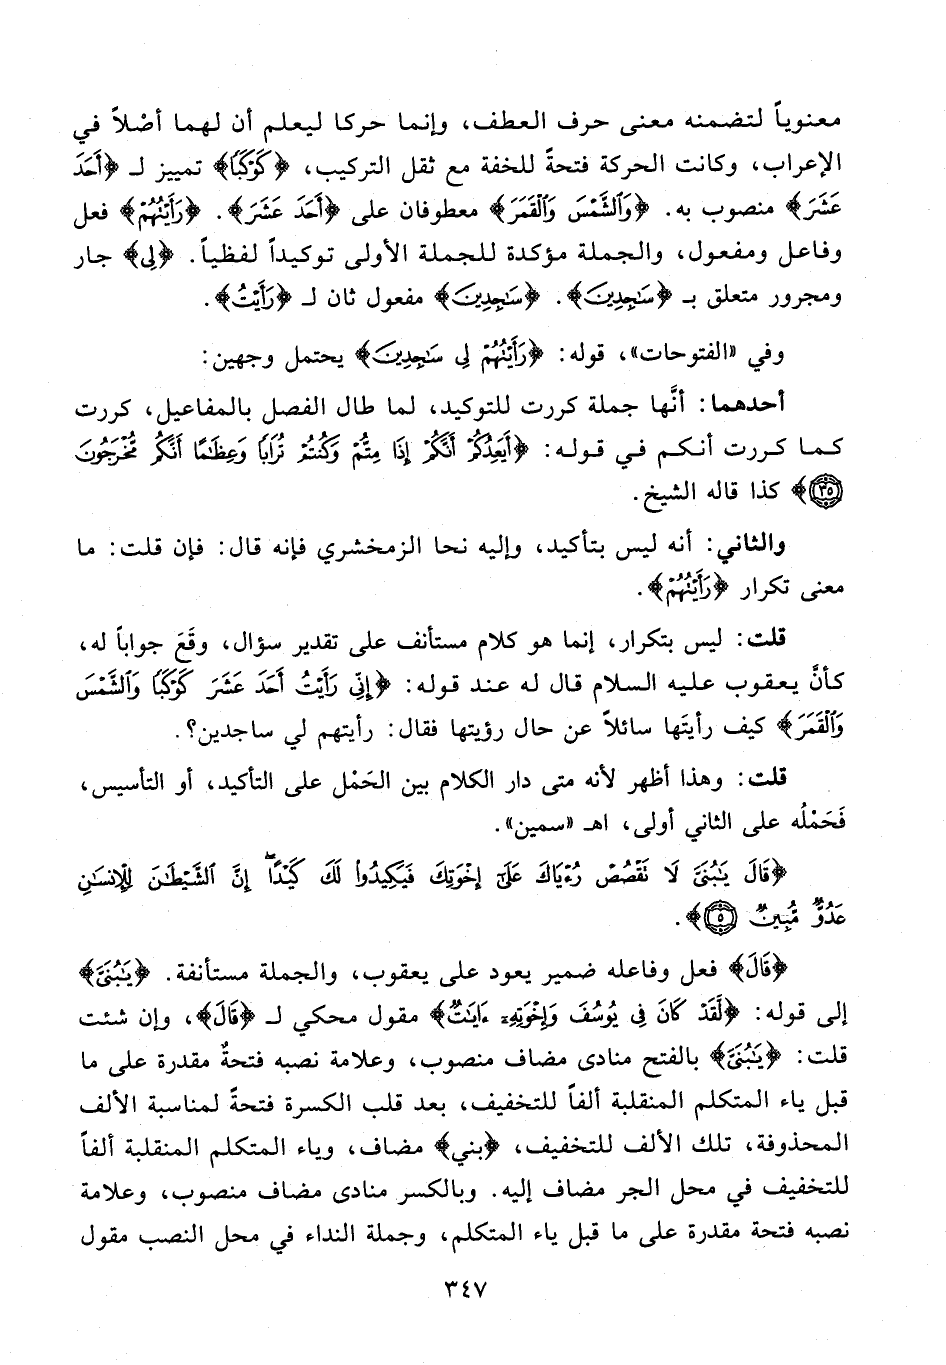 معنوياً لتضمنه معنى حرف العطف، وإنما حركا ليعلم أن لهما أصْلاً في
الإعراب، وكانت الحركة فتحةً للخفة مع ثقل التركيب، ﴿كَوْكَبًا﴾ تمييز لـ ﴿أَحَدَ
عَشَرَ﴾ منصوب به. ﴿وَٱلشَّمْسَ وَٱلْقَمَرَ﴾ معطوفان على ﴿أَحَدَ عَشَرَ﴾. ﴿رَأَيْتُهُمْ﴾ فعل
وفاعل ومفعول، والجملة مؤكدة للجملة الأولى توكيداً لفظياً. ﴿لِى﴾ جار
ومجرور متعلق بـ ﴿سَٰجِدِينَ﴾. ﴿سَٰجِدِينَ﴾ مفعول ثان لـ ﴿رَأَيْتُ﴾.
وفي «الفتوحات»، قوله: ﴿رَأَيْتُهُمْ لِى سَٰجِدِينَ﴾ يحتمل وجهين:
أحدهما: أنَّها جملة كررت للتوكيد، لما طال الفصل بالمفاعيل، كررت
كما كررت أنكم في قوله: ﴿أَيَعِدُكُمْ أَنَّكُمْ إِذَا مِتُّمْ وَكُنتُمْ تُرَابًا وَعِظَٰمًا أَنَّكُم مُّخْرَجُونَ
٣٥﴾ كذا قاله الشيخ.
والثاني: أنه ليس بتأكيد، وإليه نحا الزمخشري فإنه قال: فإن قلت: ما
معنى تكرار ﴿رَأَيْتُهُمْ﴾.
قلت: ليس بتكرار، إنما هو كلام مستأنف على تقدير سؤال، وقَعَ جواباً له،
كأنَّ يعقوب عليه السلام قال له عند قوله: ﴿إِنِّى رَأَيْتُ أَحَدَ عَشَرَ كَوْكَبًا وَٱلشَّمْسَ
وَٱلْقَمَرَ﴾ كيف رأيتَها سائلاً عن حال رؤيتها فقال: رأيتهم لي ساجدين؟.
قلت: وهذا أظهر لأنه متى دار الكلام بين الحَمْل على التأكيد، أو التأسيس،
فَحَمْلُه على الثاني أولى، اهـ «سمين».
﴿قَالَ يَٰبُنَىَّ لَا تَقْصُصْ رُءْيَاكَ عَلَىٰٓ إِخْوَتِكَ فَيَكِيدُوا۟ لَكَ كَيْدًا ۖ إِنَّ ٱلشَّيْطَٰنَ لِلْإِنسَٰنِ
عَدُوٌّ مُّبِينٌ ٥﴾.
﴿قَالَ﴾ فعل وفاعله ضمير يعود على يعقوب، والجملة مستأنفة. ﴿يَٰبُنَىَّ﴾
إلى قوله: ﴿لَّقَدْ كَانَ فِى يُوسُفَ وَإِخْوَتِهِۦٓ ءَايَٰتٌ﴾ مقول محكي لـ ﴿قَالَ﴾، وإن شئت
قلت: ﴿يَٰبُنَىَّ﴾ بالفتح منادى مضاف منصوب، وعلامة نصبه فتحةٌ مقدرة على ما
قبل ياء المتكلم المنقلبة ألفاً للتخفيف، بعد قلب الكسرة فتحةً لمناسبة الألف
المحذوفة، تلك الألف للتخفيف، ﴿بني﴾ مضاف، وياء المتكلم المنقلبة ألفاً
للتخفيف في محل الجر مضاف إليه. وبالكسر منادى مضاف منصوب، وعلامة
نصبه فتحة مقدرة على ما قبل ياء المتكلم، وجملة النداء في محل النصب مقول
٣٤٧